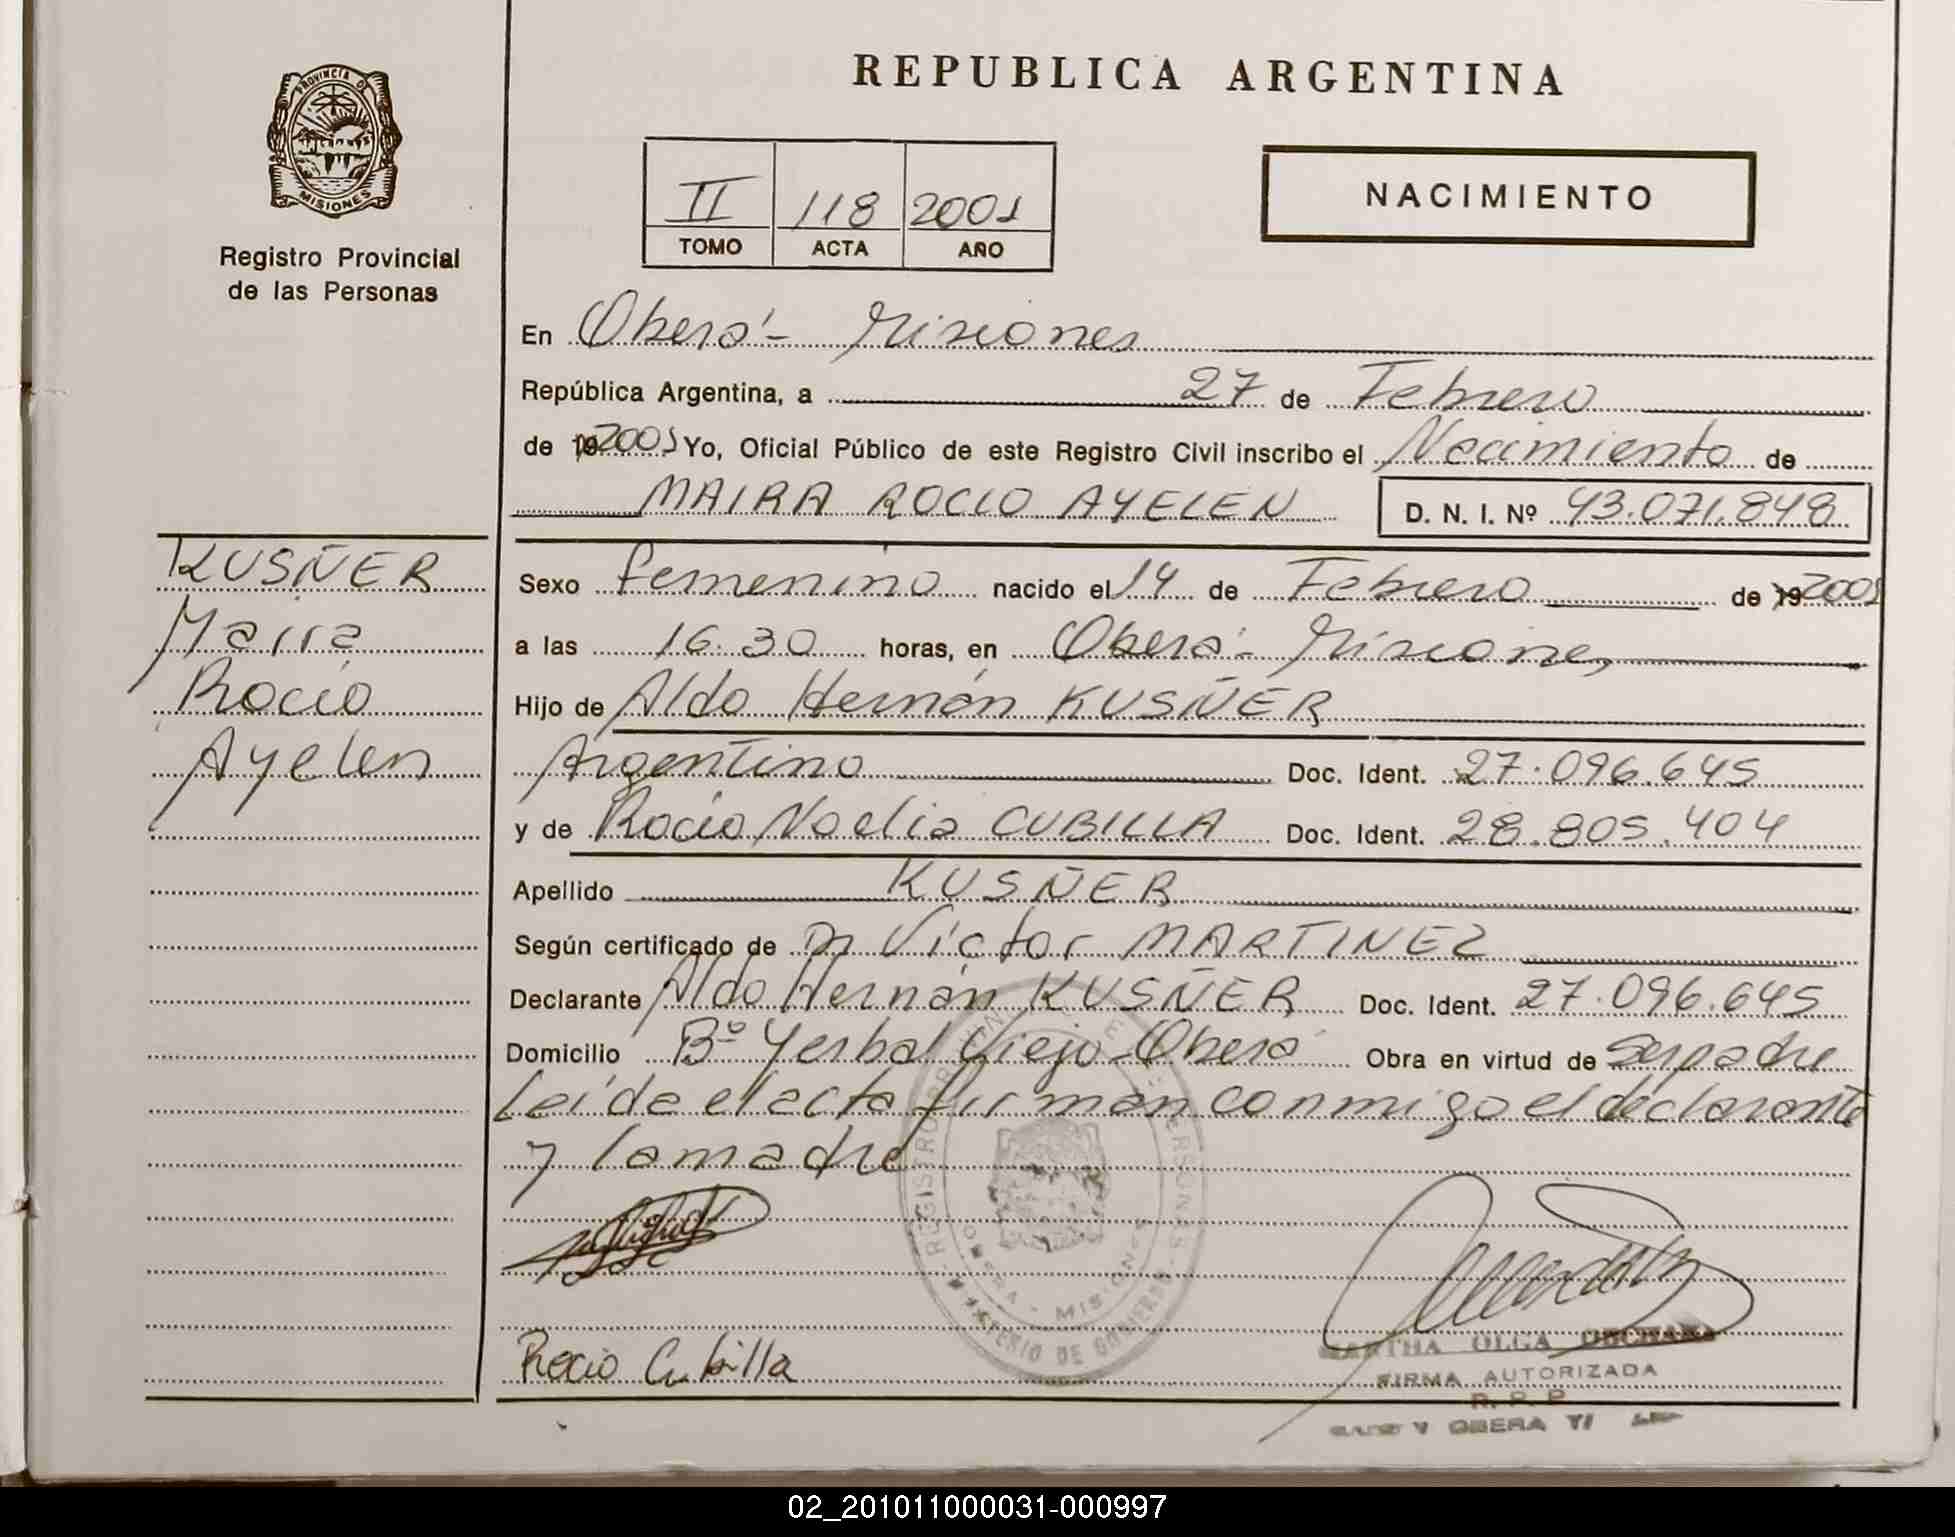 PROVINCIA DE
MISIONES
Registro Provincial
de las Personas
REPUBLICA ARGENTINA
II 118 2001
TOMO ACTA AÑO
NACIMIENTO
En Oberá - Misiones
República Argentina, a 27 de Febrero
de 19 2001 Yo, Oficial Público de este Registro Civil inscribo el Nacimiento de
MAIRA ROCIO AYELEN D. N. I. Nº 43.071.848
KUSÑER
Maira
Rocío
Ayelen
Sexo femenino nacido el 14 de Febrero de 19 2001
a las 16.30 horas, en Oberá - Misiones
Hijo de Aldo Hernán KUSÑER
Argentino Doc. Ident. 27.096.645
y de Rocío Noelia CUBILLA Doc. Ident. 28.805.404
Apellido KUSÑER
Según certificado de Dr Víctor MARTINEZ
Declarante Aldo Hernán KUSÑER Doc. Ident. 27.096.645
Domicilio Bº Yerbal Viejo - Oberá Obra en virtud de Ser padre
Leída el acta firman conmigo el declarante
y la madre
REGISTRO PERSONAS
OBERA - MISIONES
MINISTERIO DE GOBIERNO
Rocio Cubilla
MARTHA OLGA
FIRMA AUTORIZADA
R. P. P.
OBERA
02_201011000031-000997